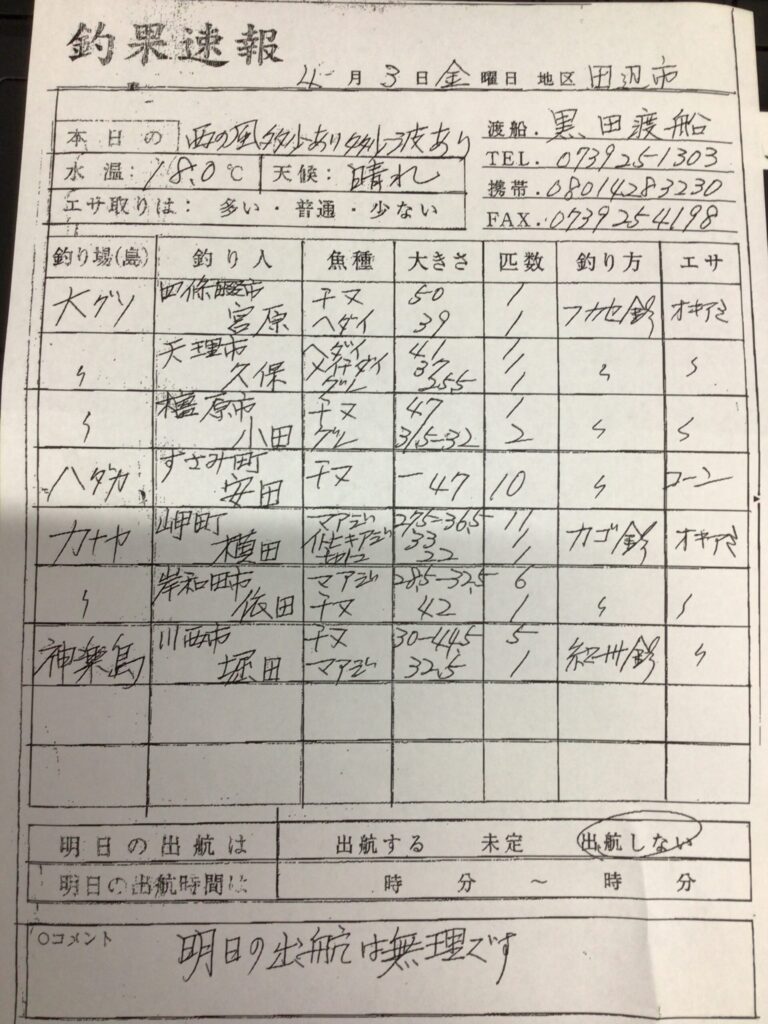 釣果速報
4月3日金曜日 地区 田辺市
本日の 西の風多少あり 多少波あり
渡船. 黒田渡船
水温: 18.0℃ 天候: 晴れ
TEL. 0739251303
携帯. 08014283230
エサ取りは: 多い・普通・少ない
FAX. 0739254198
釣り場(島) 釣り人 魚種 大きさ 匹数 釣り方 エサ
大グソ 四條畷市 宮原 チヌ 50 1 フカセ釣 オキアミ
ヘダイ 39 1
〃 天理市 久保 ヘダイ 41 1 〃 〃
メイチダイ 37 1
グレ 25.5 1
〃 橿原市 小田 チヌ 47 1 〃 〃
グレ 31.5-32 2
ハダカ すさみ町 安田 チヌ -47 10 〃 コーン
カナヤ 岬町 槙田 マアジ 27.5-36.5 11 カゴ釣 オキアミ
イトヒキアジ 33 1
22 1
〃 岸和田市 依田 マアジ 28.5-32.5 6 〃 〃
チヌ 42 1
神楽島 川西市 堀田 チヌ 30-44.5 5 紀州釣 〃
マアジ 32.5 1
明日の出航は 出航する 未定 出航しない
明日の出航時間は 時 分 ~ 時 分
○コメント
明日の出航は無理です